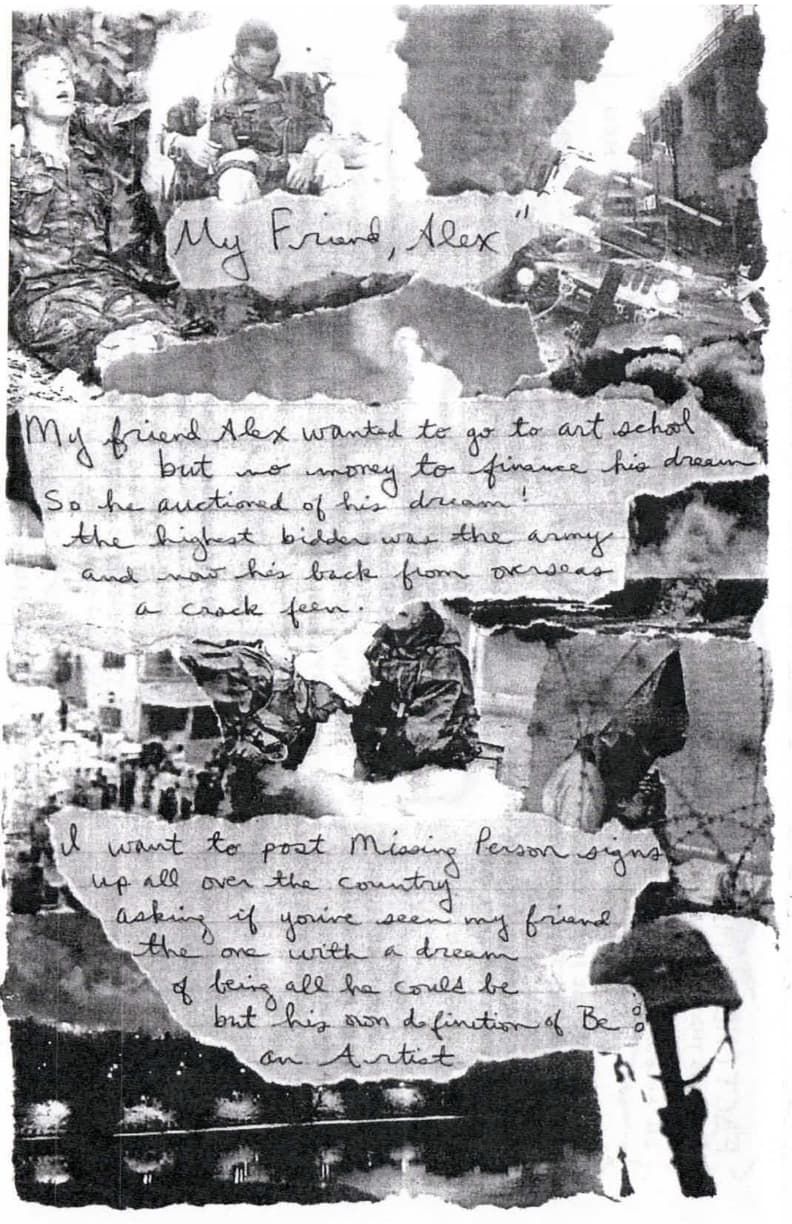 My Friend, Alex"
My friend Alex wanted to go to art school
but no money to finance his dream
So he auctioned of his dream!
the highest bidder was the army
and now he's back from overseas
a crack feen.
I want to post Missing Person signs
up all over the country
asking if you've seen my friend
the one with a dream
of being all he could be
but his own definition of Be:
an Artist